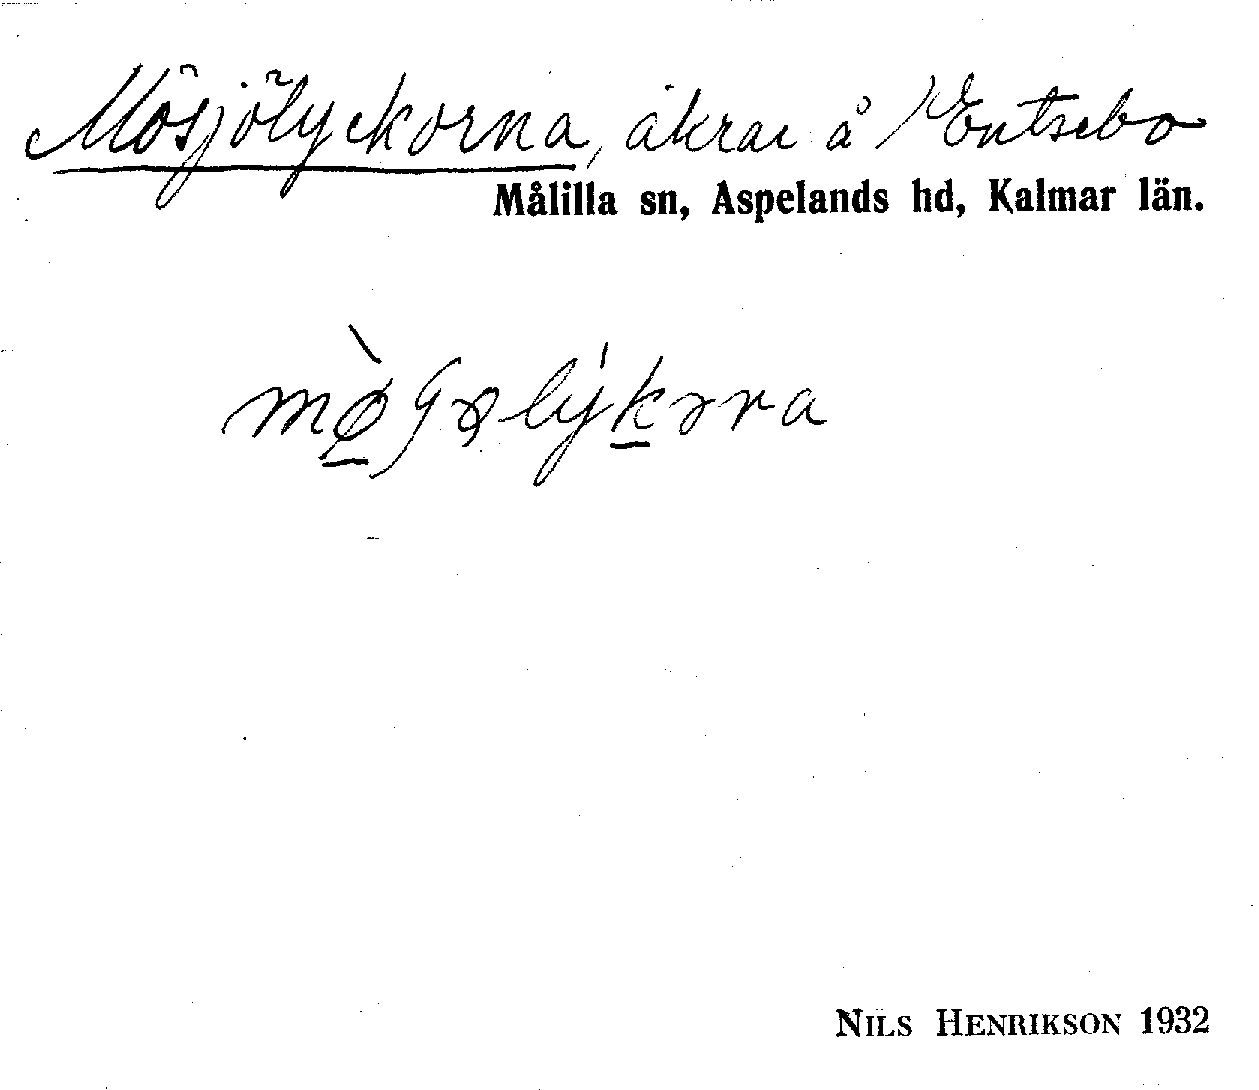 Mösjölyckorna, åkrar å Entsebo
Målilla sn, Aspelands hd, Kalmar län.
NILS HENRIKSON 1932